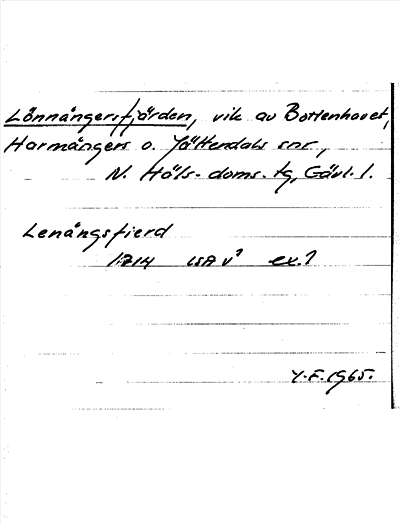 Lönnångersfjärden, vik av Bottenhavet,
Harmångers o. Jättendals snr,
N. Häls. doms. tg, Gävl. l.
Lenångsfierd
1714 LSA V¹ ex. 1
Y.F. 1965.